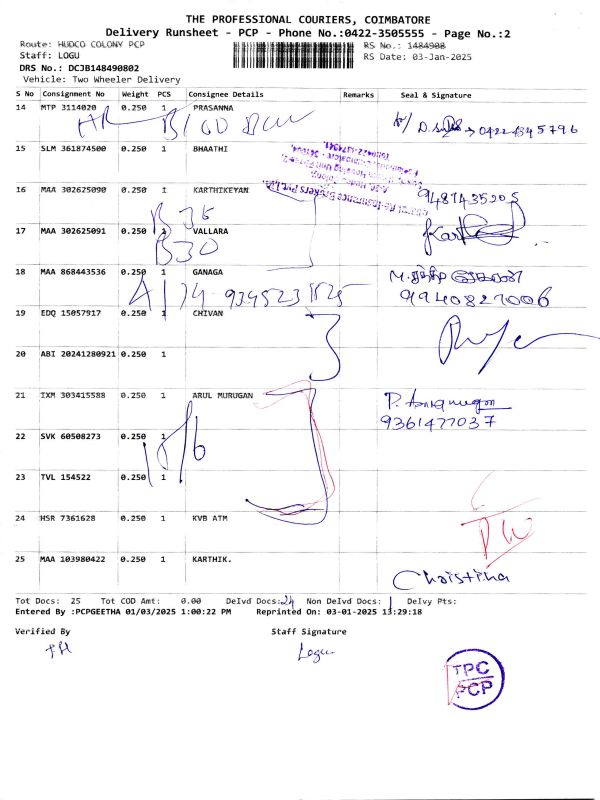 THE PROFESSIONAL COURIERS, COIMBATORE
Delivery Runsheet - PCP - Phone No.:0422-3505555 - Page No.:2
Route: HUDCO COLONY PCP
RS No.: 1484908
Staff: LOGU
RS Date: 03-Jan-2025
DRS No.: DCJB148490802
Vehicle: Two Wheeler Delivery
S No Consignment No Weight PCS Consignee Details Remarks Seal & Signature
14 MTP 3114020 0.250 1 PRASANNA
15 SLM 361874500 0.250 1 BHAATHI
16 MAA 302625090 0.250 1 KARTHIKEYAN
B 36
9487435205
17 MAA 302625091 0.250 1 VALLARA
B30
18 MAA 868443536 0.250 1 GANAGA
9940827006
19 EDQ 15057917 0.250 1 CHIVAN
20 ABI 20241280921 0.250 1
21 IXM 303415588 0.250 1 ARUL MURUGAN
9361477037
22 SVK 60508273 0.250 1
23 TVL 154522 0.250 1
24 HSR 7361628 0.250 1 KVB ATM
25 MAA 103980422 0.250 1 KARTHIK.
Christina
Tot Docs: 25 Tot COD Amt: 0.00 Delvd Docs: 24 Non Delvd Docs: 1 Delvy Pts:
Entered By :PCPGEETHA 01/03/2025 1:00:22 PM Reprinted On: 03-01-2025 13:29:18
Verified By
Staff Signature
Logu
TPC
PCP